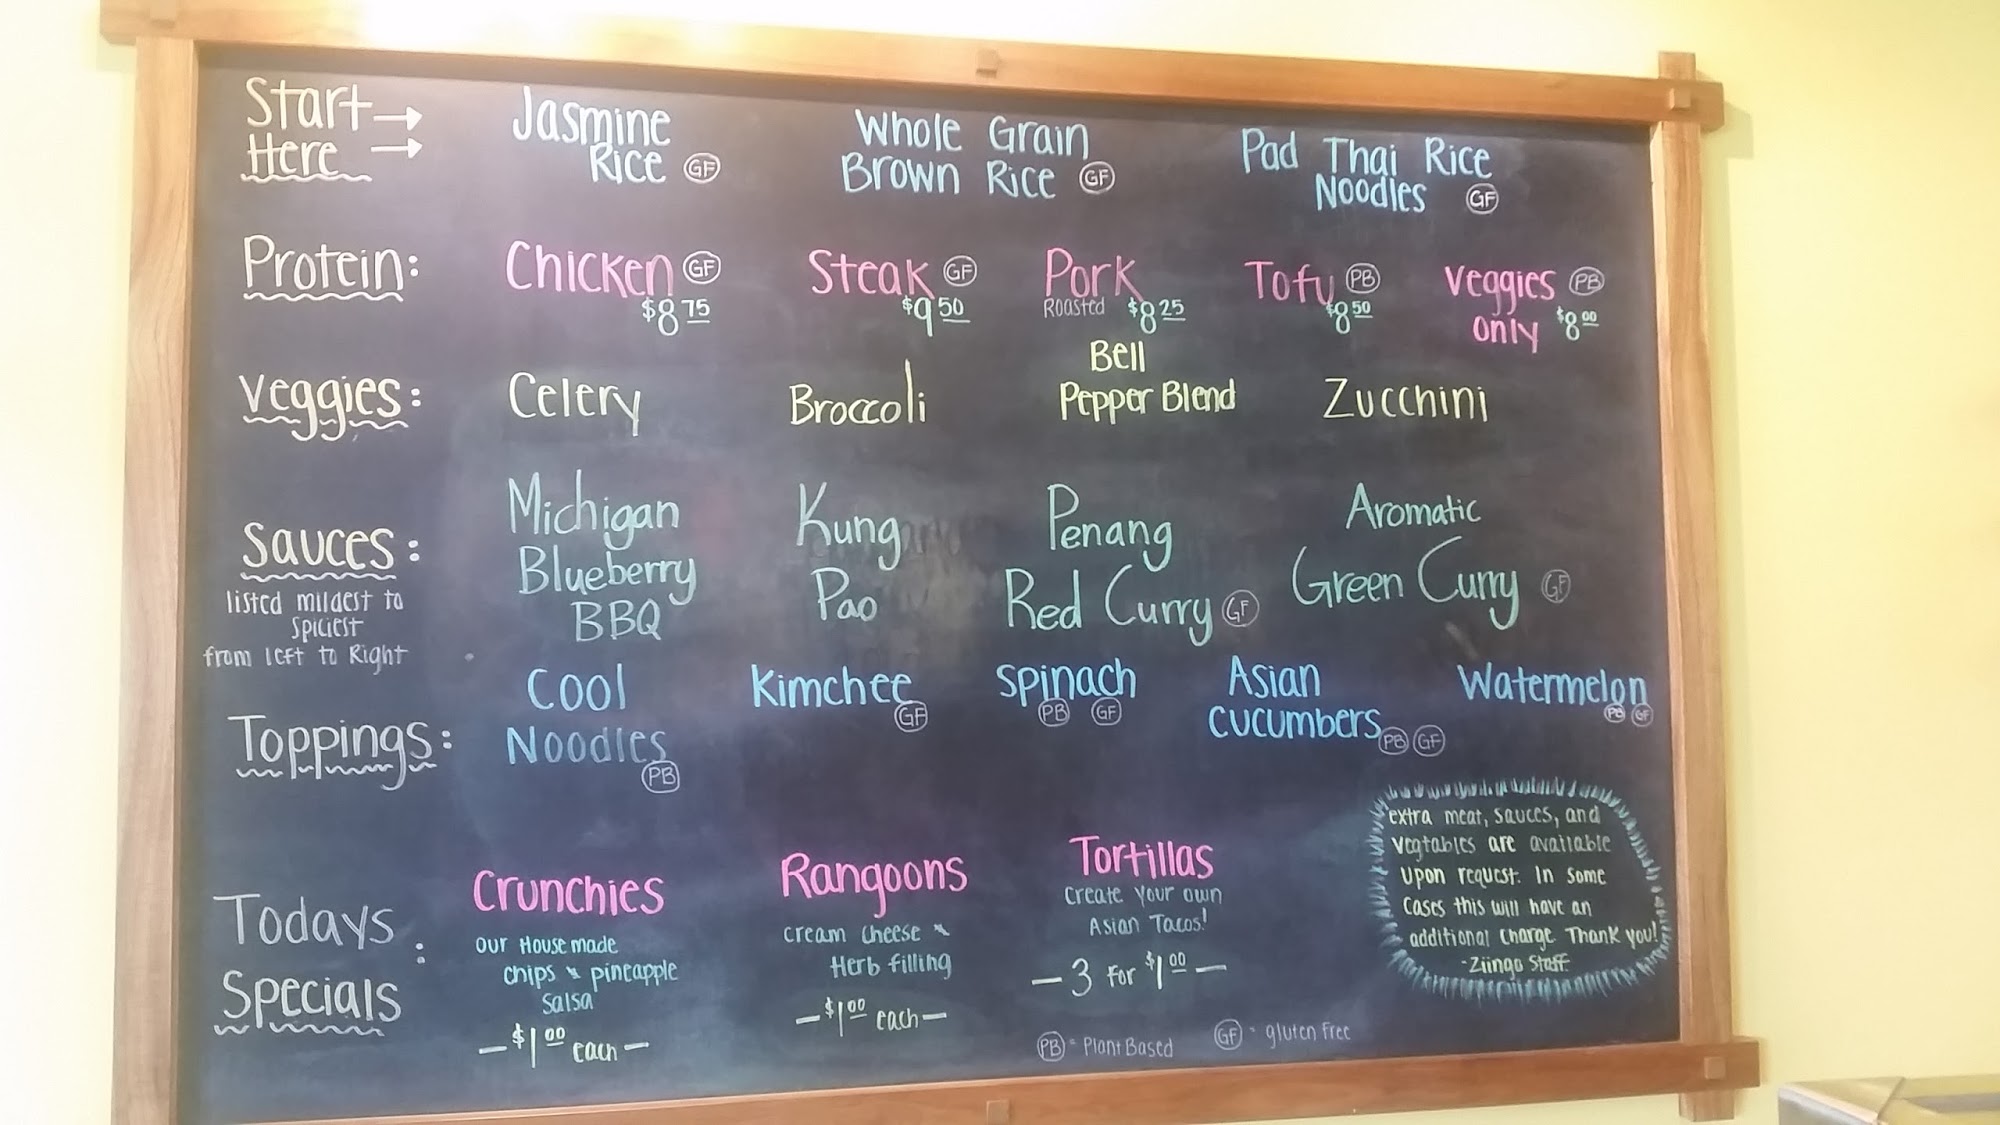 Start →
Here →
Jasmine
Rice GF
Whole Grain
Brown Rice GF
Pad Thai Rice
Noodles GF
Protein:
Chicken GF
$8.75
Steak GF
$9.50
Pork
Roasted $8.25
Tofu PB
$8.50
Veggies PB
only $8.00
Veggies:
Celery
Broccoli
Bell
Pepper Blend
Zucchini
Sauces:
listed mildest to
spiciest
from left to Right
Michigan
Blueberry
BBQ
Kung
Pao
Penang
Red Curry GF
Aromatic
Green Curry GF
Toppings:
Cool
Noodles
PB
Kimchee
GF
Spinach
PB GF
Asian
Cucumbers
PB GF
Watermelon
PB GF
Todays
Specials:
Crunchies
our House made
chips & pineapple
salsa
- $1.00 each -
Rangoons
cream cheese &
Herb filling
- $1.00 each -
Tortillas
Create your own
Asian Tacos!
- 3 for $1.00 -
extra meat, sauces, and
vegtables are available
upon request. In some
cases this will have an
additional charge. Thank you!
-Ziingo Staff
PB = Plant Based
GF = gluten free